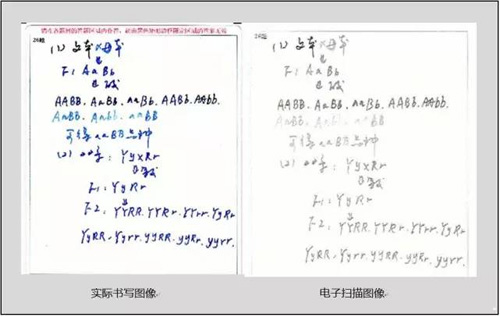 请在各题目的答题区域内作答，超出黑色矩形边框限定区域的答案无效
(1) 父本×母本
F1: AaBb
AABB. AaBB. aaBb. AABb. AAbb.
AaBb. Aabb. aaBB
可得aaBB品种
(2) : YyxRr
F1: YyRr
F2: YYRR. YYRr. YYrr. YyRr
YyRR. Yyrr. yyRR. yyRr. yyrr.
实际书写图像
(1) 父本×母本
F1: AaBb
AABB. AaBB. aaBb. AABb. AAbb.
AaBb. Aabb. aaBB
可得aaBB品种
(2) : YyxRr
F1: YyRr
F2: YYRR. YYRr. YYrr. YyRr
YyRR. Yyrr. yyRR. yyRr. yyrr.
电子扫描图像